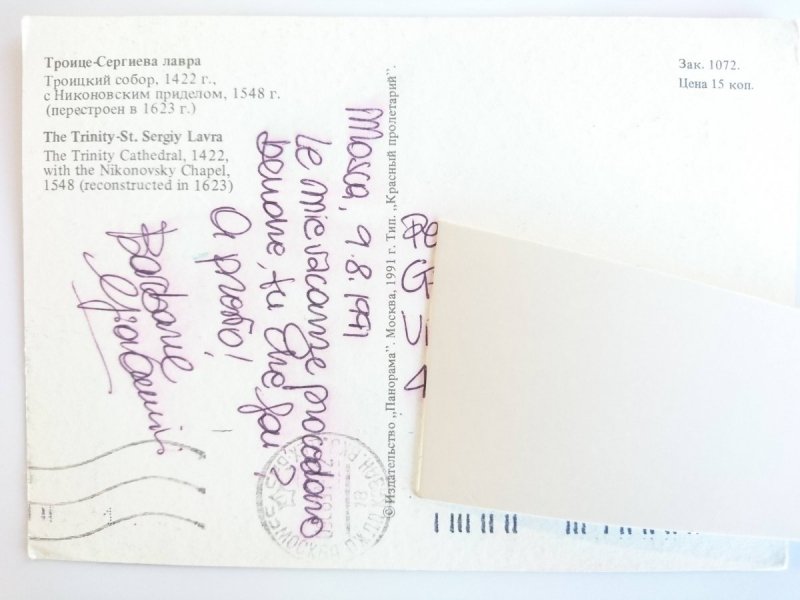 Троице-Сергиева лавра
Троицкий собор, 1422 г.,
с Никоновским приделом, 1548 г.
(перестроен в 1623 г.)
The Trinity-St. Sergiy Lavra
The Trinity Cathedral, 1422,
with the Nikonovsky Chapel,
1548 (reconstructed in 1623)
Зак. 1072.
Цена 15 коп.
Mosca, 9.8.1991
le mie vacanze procedono
benone, tu che fai?
A presto!
Barbara
© Издательство „Панорама”. Москва, 1991 г. Тип. „Красный пролетарий”.